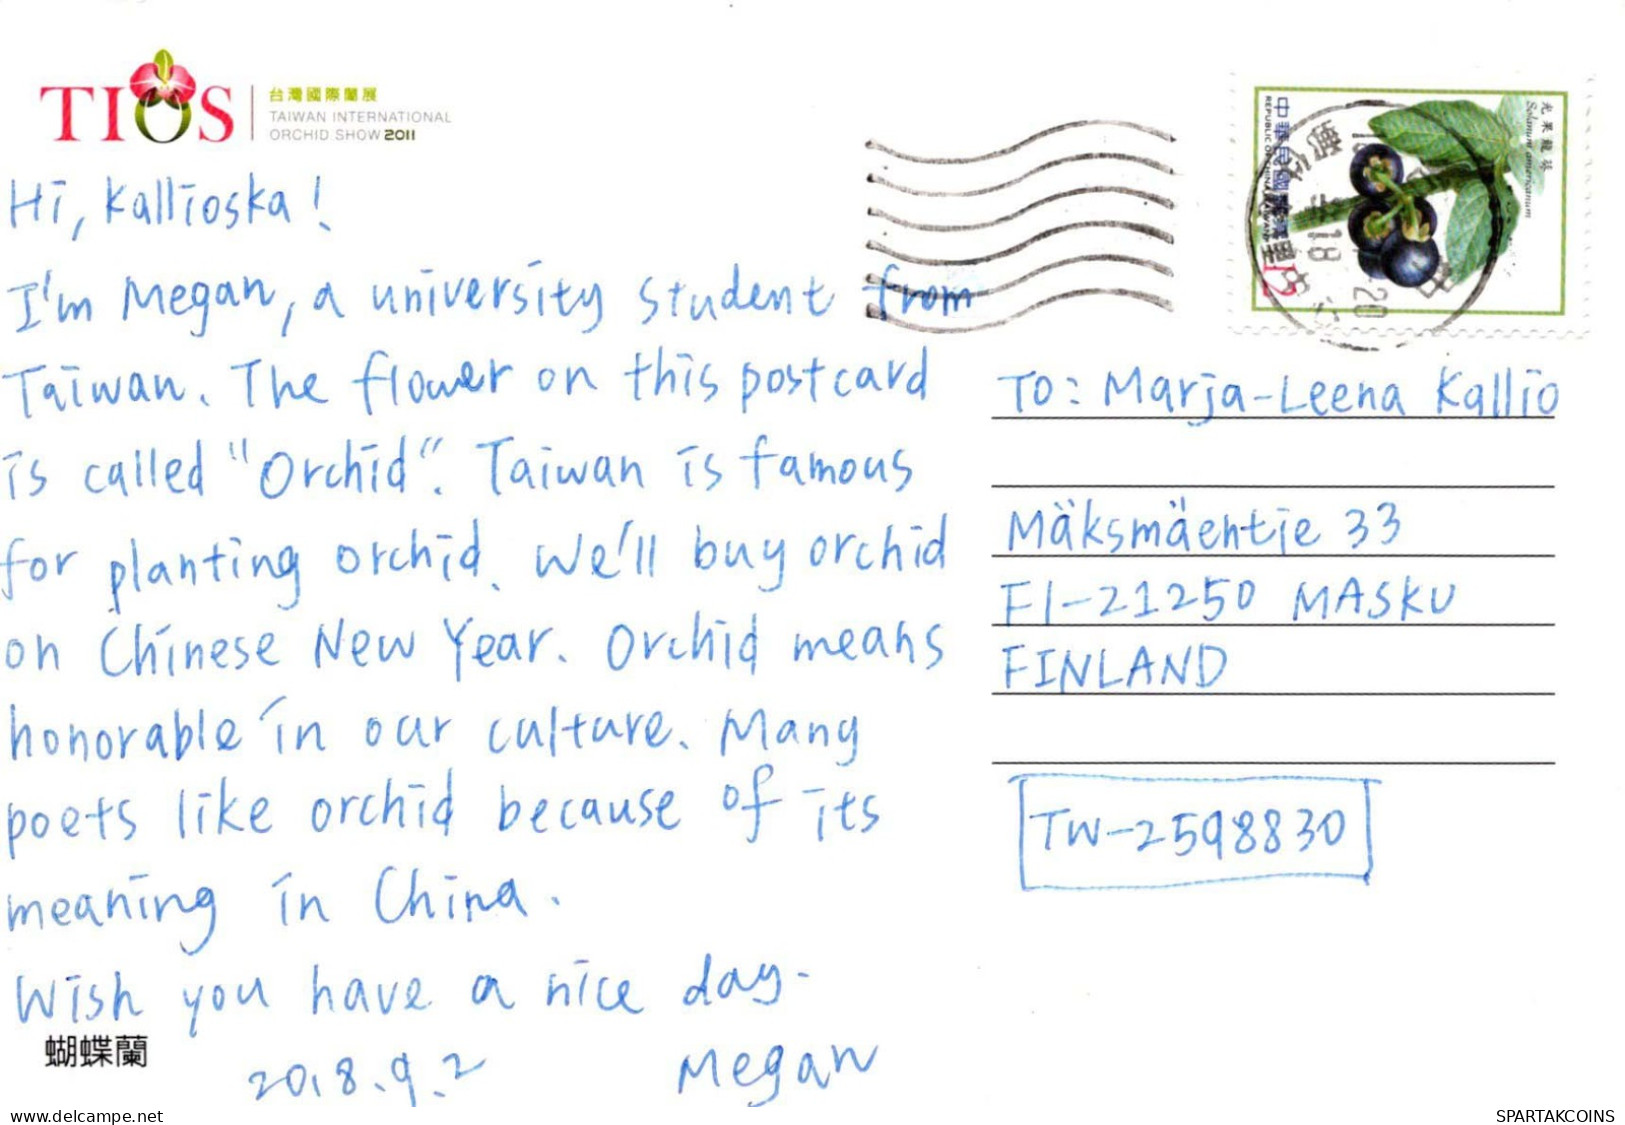 TIOS
台灣國際蘭展
TAIWAN INTERNATIONAL
ORCHID SHOW 2011
Hi, Kallioska!
I'm Megan, a university student from
Taiwan. The flower on this postcard
is called "Orchid". Taiwan is famous
for planting orchid. We'll buy orchid
on Chinese New Year. Orchid means
honorable in our culture. Many
poets like orchid because of its
meaning in China.
Wish you have a nice day.
蝴蝶蘭
2018.9.2 Megan
光果龍葵
Solanum americanum
中華民國
REPUBLIC OF CHINA
To: Marja-Leena Kallio
Mäksmäentie 33
FI-21250 MASKU
FINLAND
TW-2598830
www.delcampe.net
SPARTAKCOINS